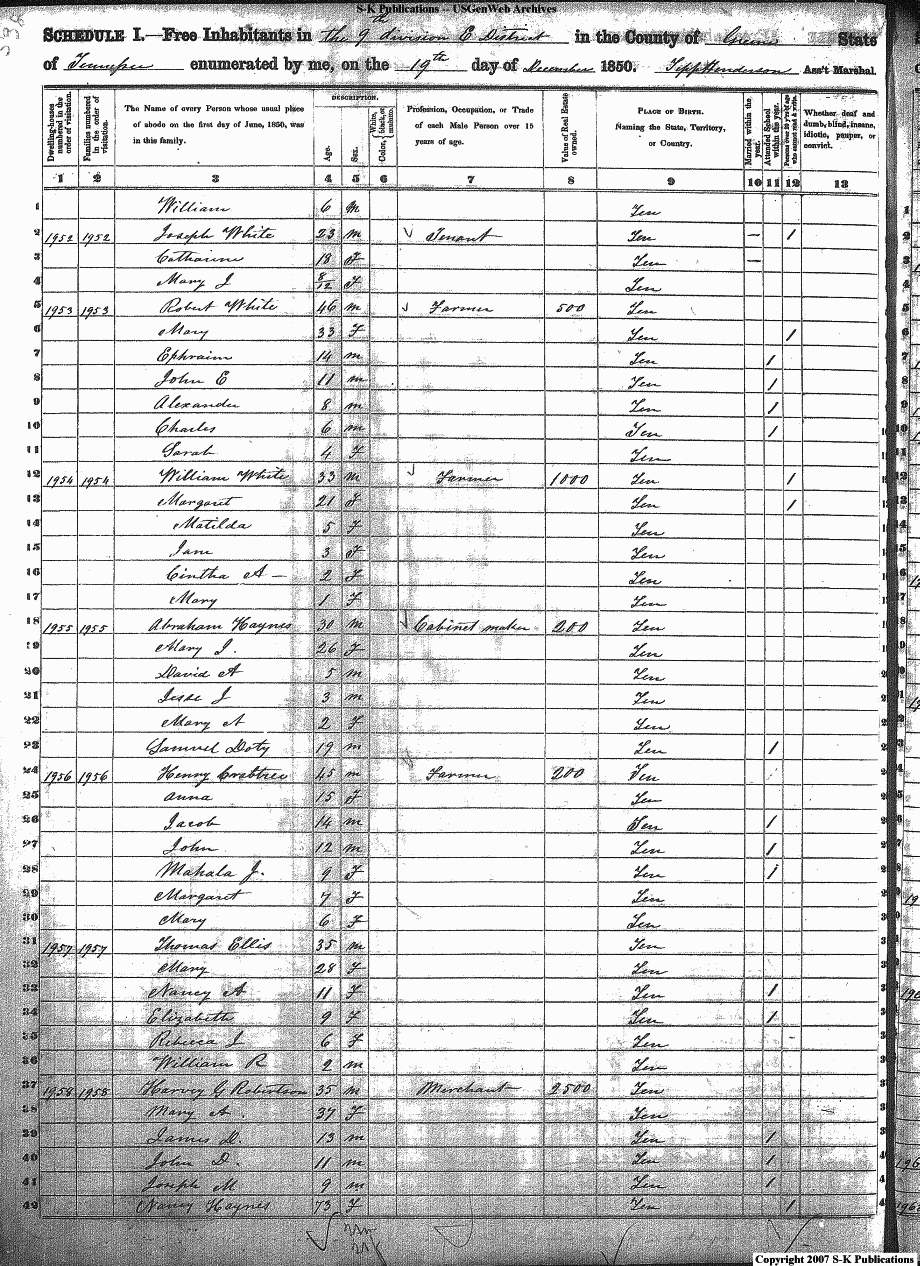 S-K Publications -- USGenWeb Archives
SCHEDULE I.—Free Inhabitants in the 9th division E District in the County of Greene State
of Tennessee enumerated by me, on the 19th day of December 1850. Henderson Ass't Marshal.
Dwelling-houses numbered in the order of visitation. Families numbered in the order of visitation. The Name of every Person whose usual place of abode on the first day of June, 1850, was in this family. DESCRIPTION. Age. Sex. Color, White, black, or mulatto. Profession, Occupation, or Trade of each Male Person over 15 years of age. Value of Real Estate owned. PLACE OF BIRTH. Naming the State, Territory, or Country. Married within the year. Attended School within the year. Persons over 20 y'rs of age who cannot read & write. Whether deaf and dumb, blind, insane, idiotic, pauper, or convict.
1 2 3 4 5 6 7 8 9 10 11 12 13
1 William 6 M Ten 1
2 1952 1952 Joseph White 23 m Tenant Ten – 1 2
3 Catharine 18 F Ten – 3
4 Mary J 8/12 F Ten 4
5 1953 1953 Robert White 46 m Farmer 500 Ten 5
6 Mary 33 F Ten 1 6
7 Ephraim 14 m Ten 1 7
8 John E 11 m Ten 1 8
9 Alexander 8 m Ten 1 9
10 Charles 6 m Ten 1 10
11 Sarah 4 F Ten 11
12 1954 1954 William White 33 m Farmer 1000 Ten 1 12
13 Margaret 21 F Ten 1 13
14 Matilda 5 F Ten 14
15 Jane 3 F Ten 15
16 Cintha A – 2 F Ten 16
17 Mary 1 F Ten 17
18 1955 1955 Abraham Haynes 30 m Cabinet maker 200 Ten 18
19 Mary J. 26 F Ten
20 David A 5 m Ten
21 Jesse J 3 m Ten
22 Mary A 2 F Ten
23 Samuel Doty 19 m Ten 1
24 1956 1956 Henry Crabtree 45 m Farmer 200 Ten
25 Anna 15 F Ten
26 Jacob 14 m Ten 1
27 John 12 m Ten 1
28 Mahala J. 9 F Ten 1
29 Margaret 7 F Ten
30 Mary 6 F Ten
31 1957 1957 Thomas Ellis 35 m Ten
32 Mary 28 F Ten
33 Nancy A 11 F Ten 1
34 Elizabeth 9 F Ten 1
35 Rebecca J 6 F Ten
36 William R 2 m Ten
37 1958 1958 Harvey G Robertson 35 m Merchant 2500 Ten
38 Mary A. 37 F Ten
39 James D. 13 m Ten 1
40 John D. 11 m Ten 1
41 Joseph M 9 m Ten 1
42 Nancy Haynes 73 F Ten 1
Copyright 2007 S-K Publications